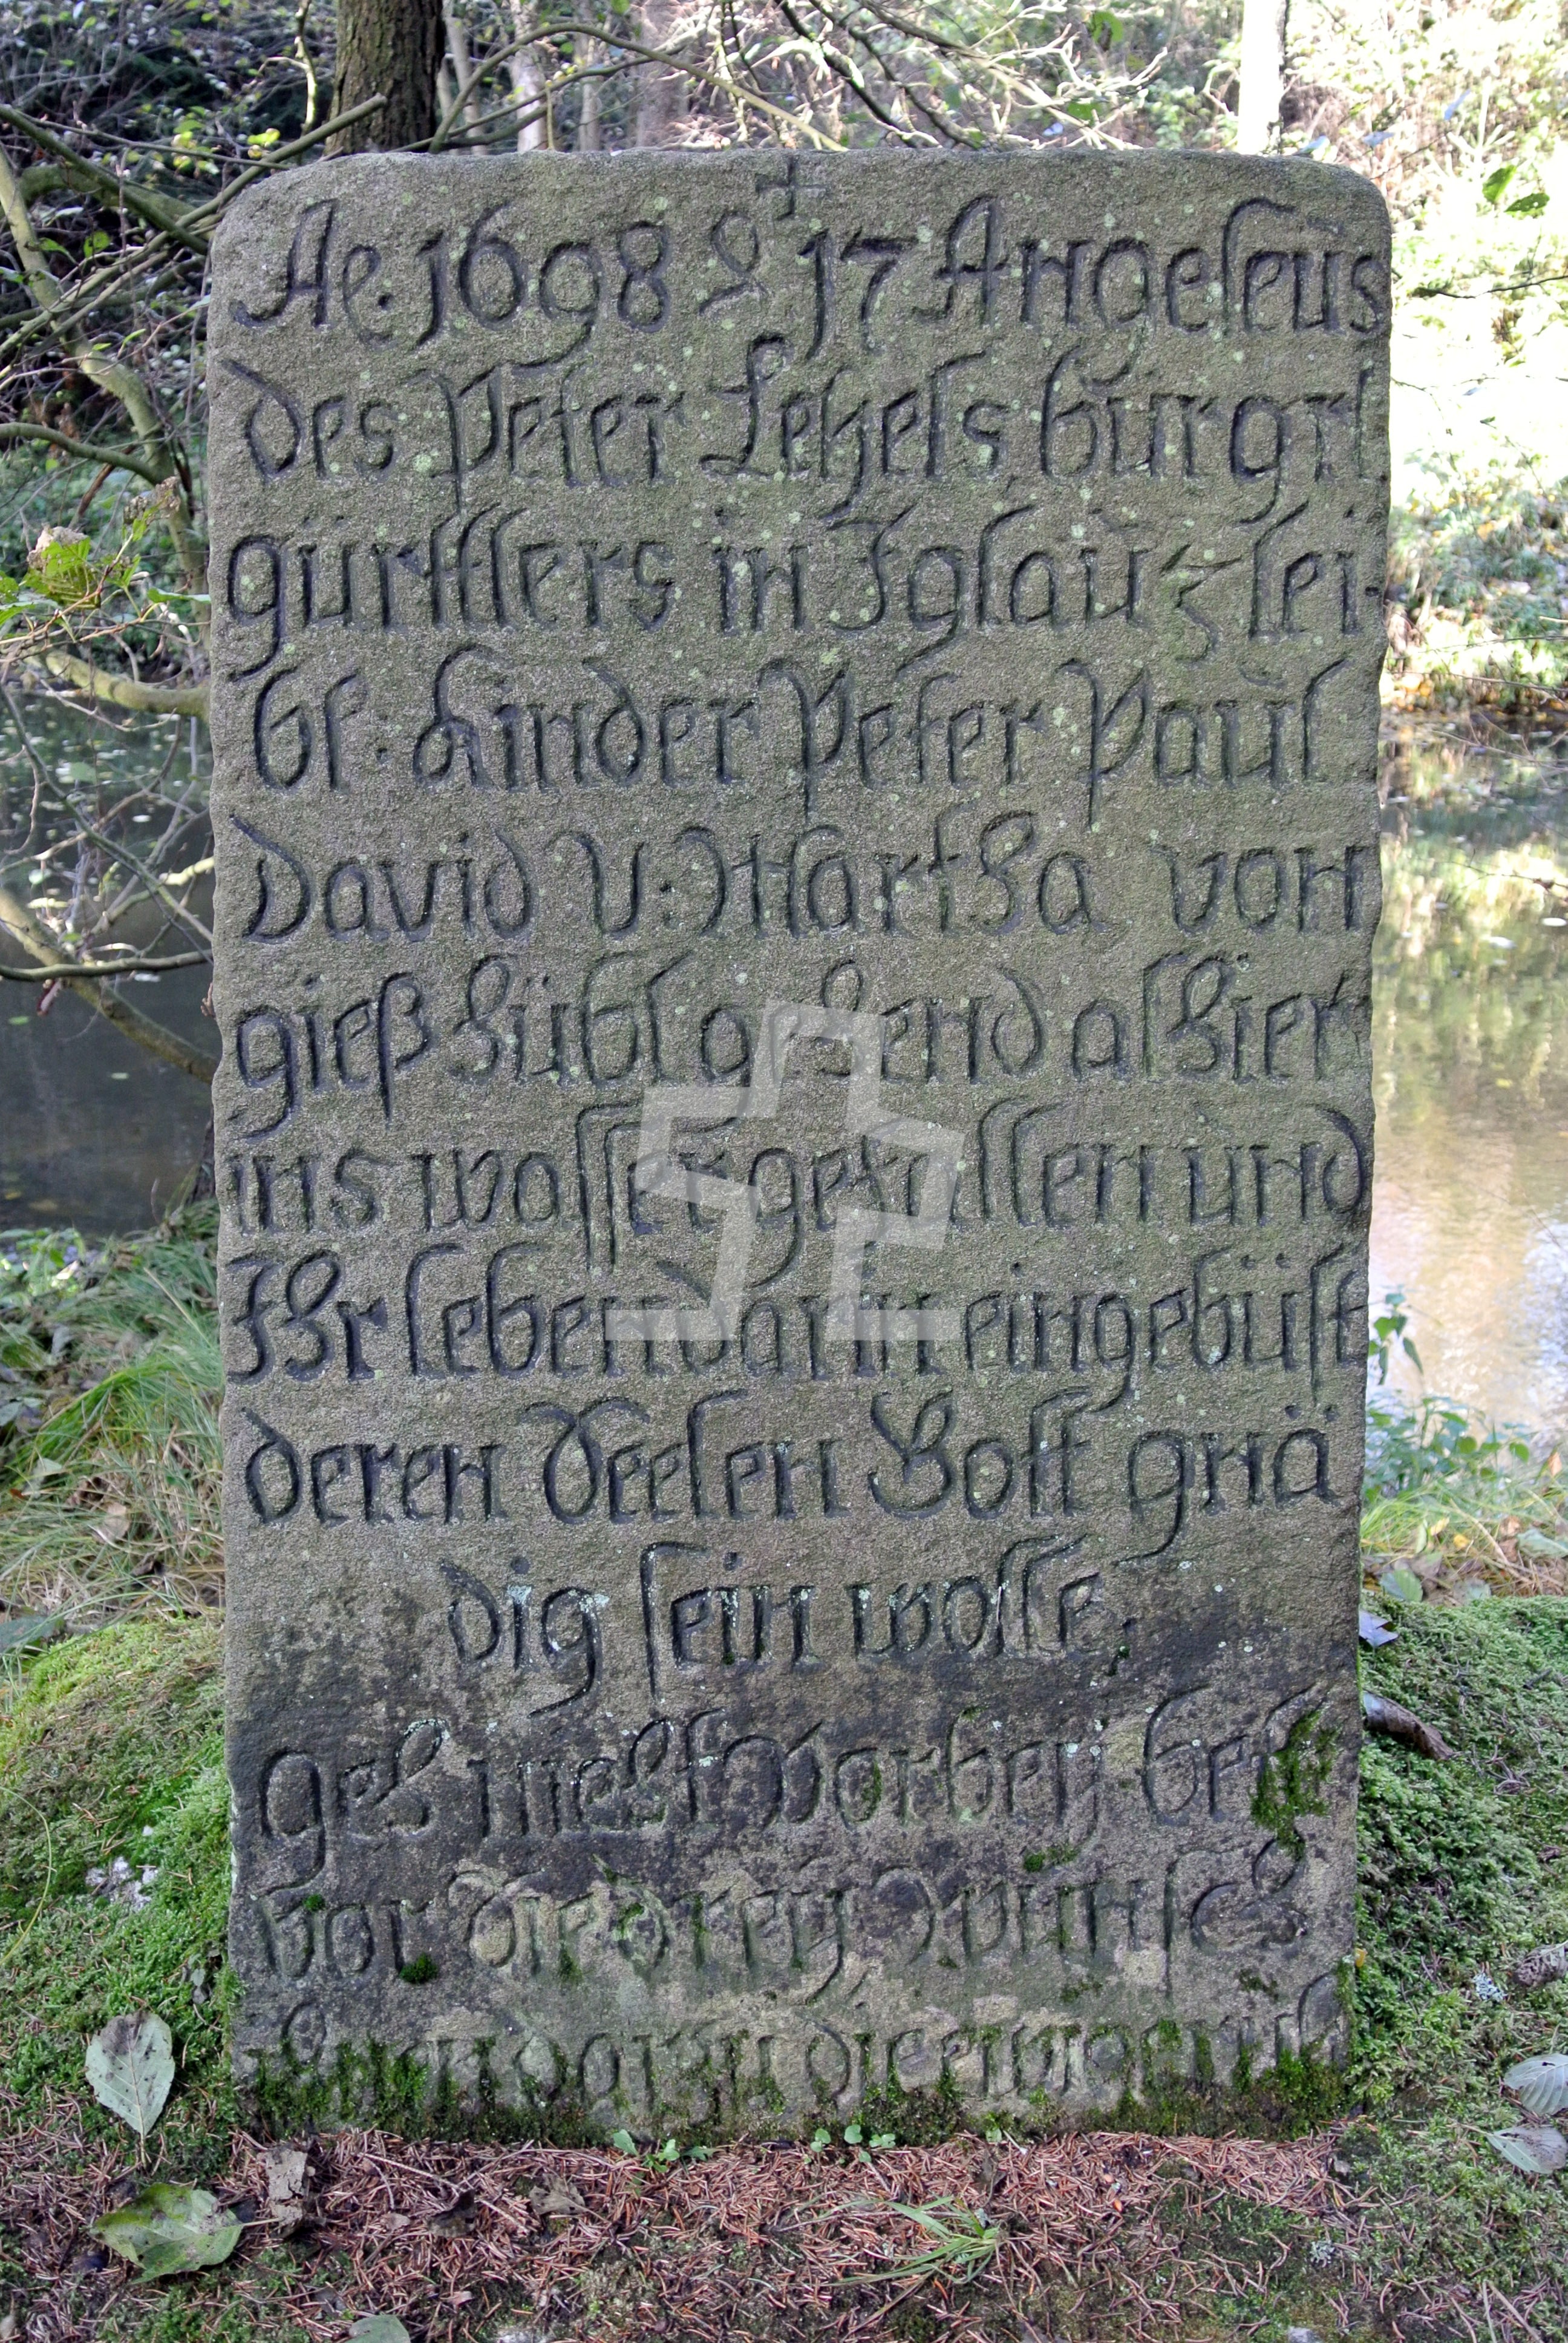 Ae. 1698 d 17 Angeleŭs
des Peter Letzels burgrl.
gürttlers in Iglaŭ 3 lei-
bl. Kinder Peter Paŭl
David v: Martha von
gieß hübl gehend alhier
ins wasser gefallen und
Ihr leben darin eingebüst
deren Seelen Gott gnä
dig sein wolle;
geh nicht vorbey beth
vor die drey